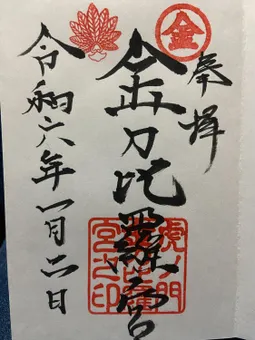 奉拝
金
金刀比羅宮
虎ノ門
宮之印
令和六年一月二日